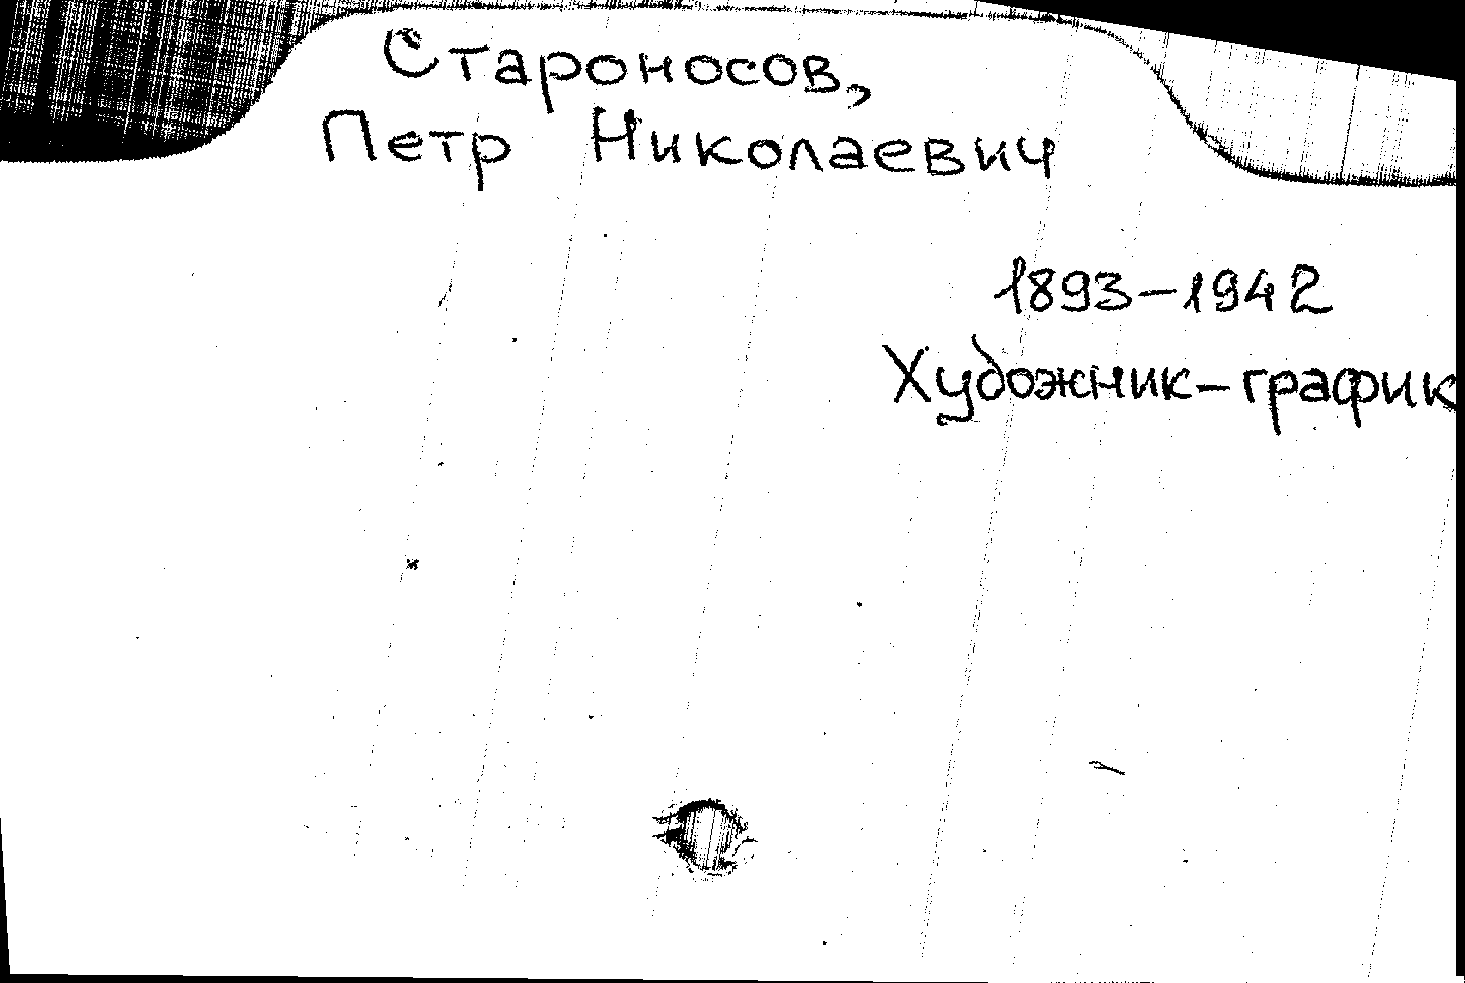 Староносов,
Петр Николаевич
1893–1942
Художник–график